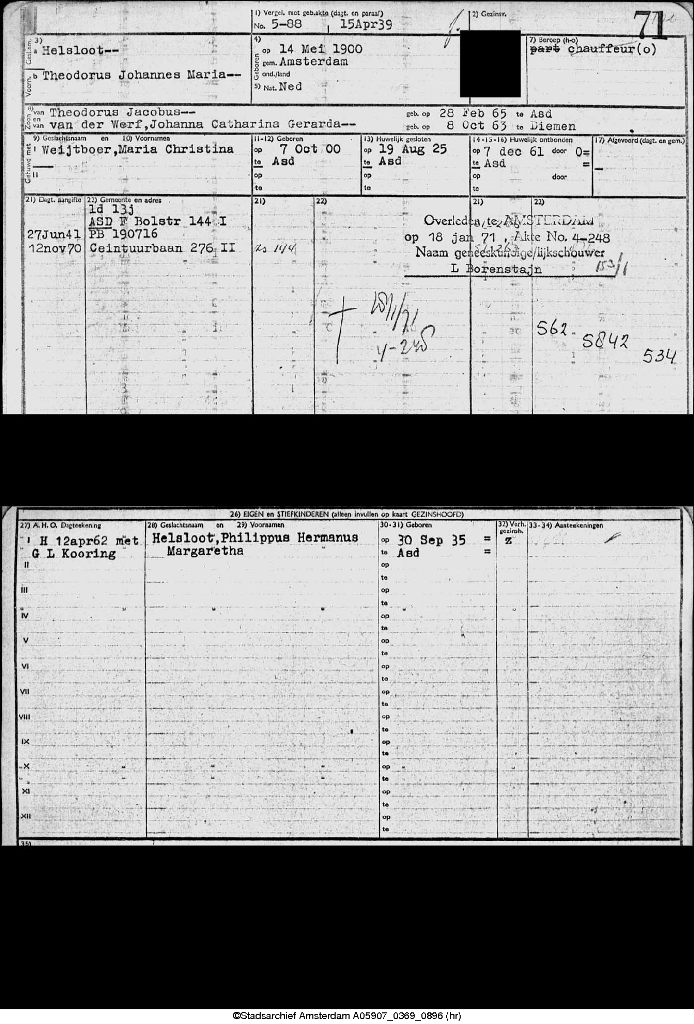 1) Vergel. met geb.akte (dagt. en paraaf)
No. 5-88 15Apr39
2) Gezinsv.
71
3)
a Helsloot--
Voorn. b Theodorus Johannes Maria--
4)
Geboren op 14 Mei 1900
gem. Amsterdam
ond./land
5) Nat. Ned
7) Beroep (h-o)
part chauffeur(o)
8) van Theodorus Jacobus-- geb. op 28 Feb 65 te Asd
en van van der Werf,Johanna Catharina Gerarda-- geb. op 8 Oct 63 te Diemen
9) Geslachtsnaam en 10) Voornamen
Gehuwd met I Weijtboer,Maria Christina
II
11-12) Geboren
op 7 Oct 00
te Asd
op
te
13) Huwelijk gesloten
op 19 Aug 25
te Asd
op
te
14-15-16) Huwelijk ontbonden
op 7 dec 61 door O=
te Asd =
op door
te
17) Afgevoerd (dagt. en gem.)
21) Dagt. aangifte 22) Gemeente en adres 21) 22) 21) 22)
1d 13j
ASD F Bolstr 144 I
27Jun41 PB 190716
12nov70 Ceintuurbaan 276 II
Overleden te AMSTERDAM
op 18 jan 71 , Akte No. 4-248
Naam geneeskundige/lijkschouwer
L Borenstajn
153/1
18/1/71
4-248
S62
S842
534
26) EIGEN en STIEFKINDEREN (alleen invullen op kaart GEZINSHOOFD)
27) A. H. O. Dagteekening 28) Geslachtsnaam en 29) Voornamen 30-31) Geboren 32) Verh. gezinsh. 33-34) Aanteekeningen
I H 12apr62 met Helsloot,Philippus Hermanus op 30 Sep 35 = z
G L Kooring Margaretha te Asd =
II op
te
III op
te
IV op
te
V op
te
VI op
te
VII op
te
VIII op
te
IX op
te
X op
te
XI op
te
XII op
te
35)
©Stadsarchief Amsterdam A05907_0369_0896 (hr)